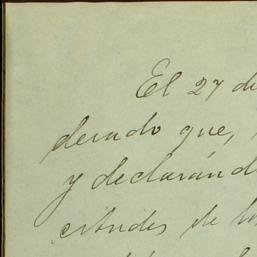 El 27 de
derado que,
y declarand
citudes de lo